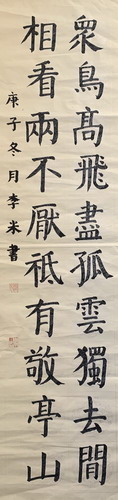 衆鳥髙飛盡孤雲獨去閒
相看兩不厭祗有敬亭山
庚子冬月李米書